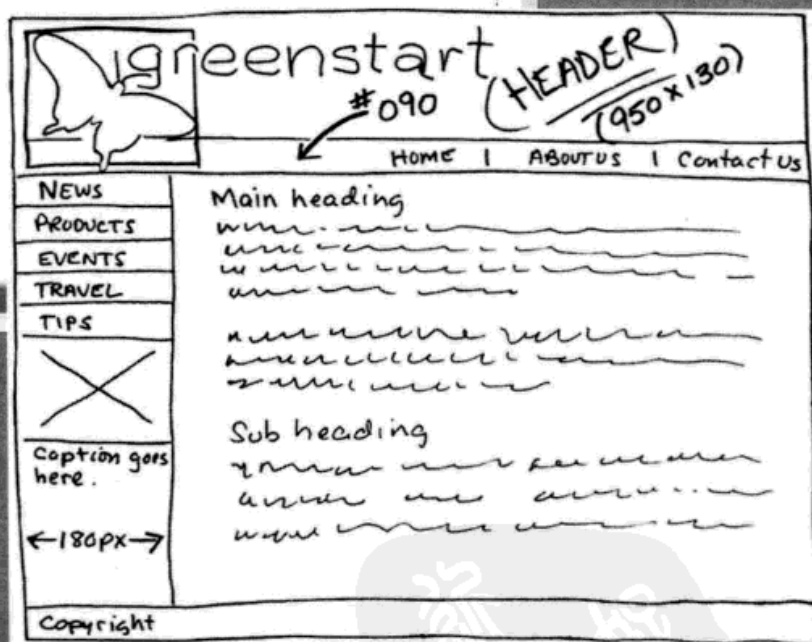 greenstart
(HEADER)
(950 x 130)
#090
HOME | ABOUT US | Contact Us
NEWS
PRODUCTS
EVENTS
TRAVEL
TIPS
Caption goes
here.
←180px→
Main heading
Sub heading
Copyright